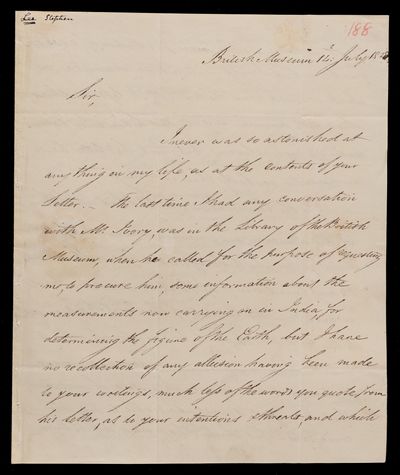 Lee Stephen
188
British Museum 14 July
Sir,
I never was so astonished at
any thing in my life, as at the contents of your
letter. The last time I had any conversation
with Mr. Ivory, was in the Library of the British
Museum, when he called for the purpose of requesting
me, to procure him, some information about the
measurements now carrying on in India, for
determining the figure of the Earth, but I have
no recollection of any allusion having been made
to your writings, much less of the words you quote from
his letter, as to your intentions & threats, and which